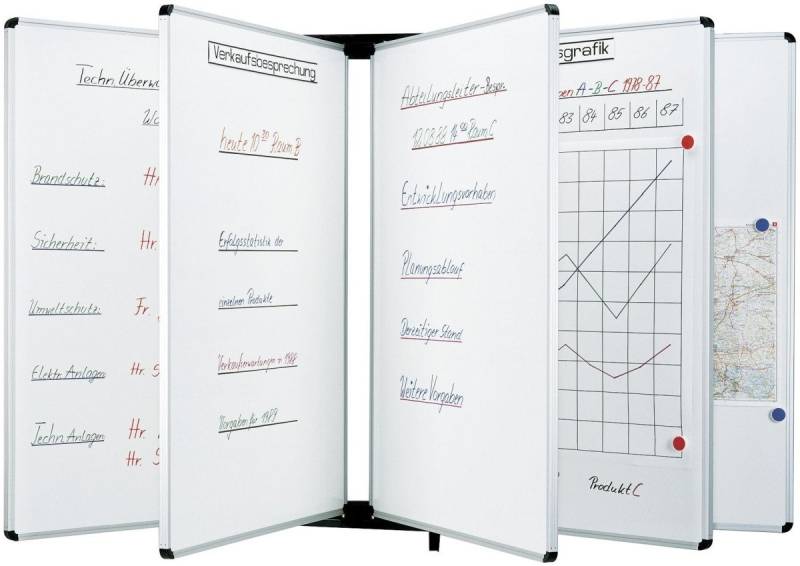 Techn. Überwa
Brandschutz: Hr.
Sicherheit: Hr.
Umweltschutz: Fr.
Elektr. Anlagen Hr. S
Techn. Anlagen Hr.
Hr. S
Verkaufsbesprechung
heute 10³⁰ Raum B
Erfolgsstatistik der
einzelnen Produkte
Verkaufserwartungen in 1988
Vorgaben für 1989
Abteilungsleiter-Bespr.
Raum C
Entwicklungsvorhaben
Planungsablauf
Derzeitiger Stand
Weitere Vorgaben
sgrafik
en A-B-C 1978-87
83 84 85 86 87
Produkt C